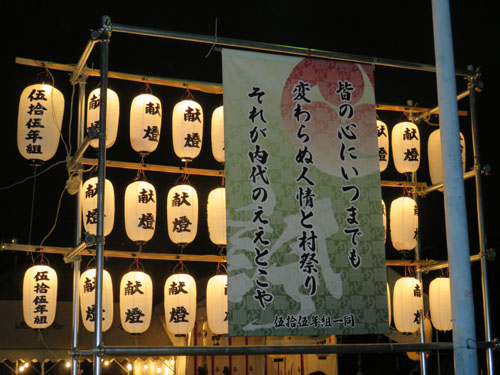 皆の心にいつまでも
変わらぬ人情と村祭り
それが内代のええとこや
伍拾伍年組一同
伍拾伍年組
献燈
献燈
献燈
献燈
献燈
献燈
献燈
献燈
献燈
献燈
伍拾伍年組
献燈
献燈
献燈
献燈